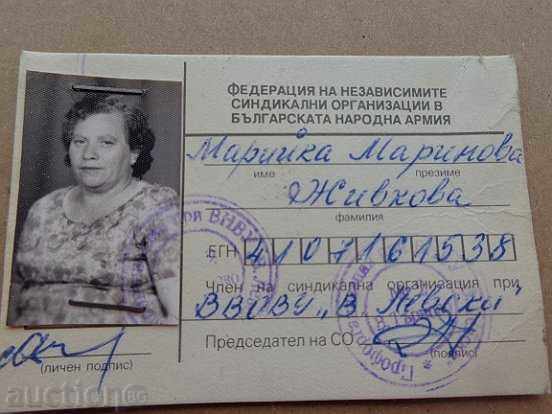 ФЕДЕРАЦИЯ НА НЕЗАВИСИМИТЕ
СИНДИКАЛНИ ОРГАНИЗАЦИИ В
БЪЛГАРСКАТА НАРОДНА АРМИЯ
Марийка Маринова
име презиме
Живкова
фамилия
ЕГН 4107161538
Член на синдикална организация при
ВВОВУ „В. Левски"
Председател на СО
(подпис)
(личен подпис)
auction